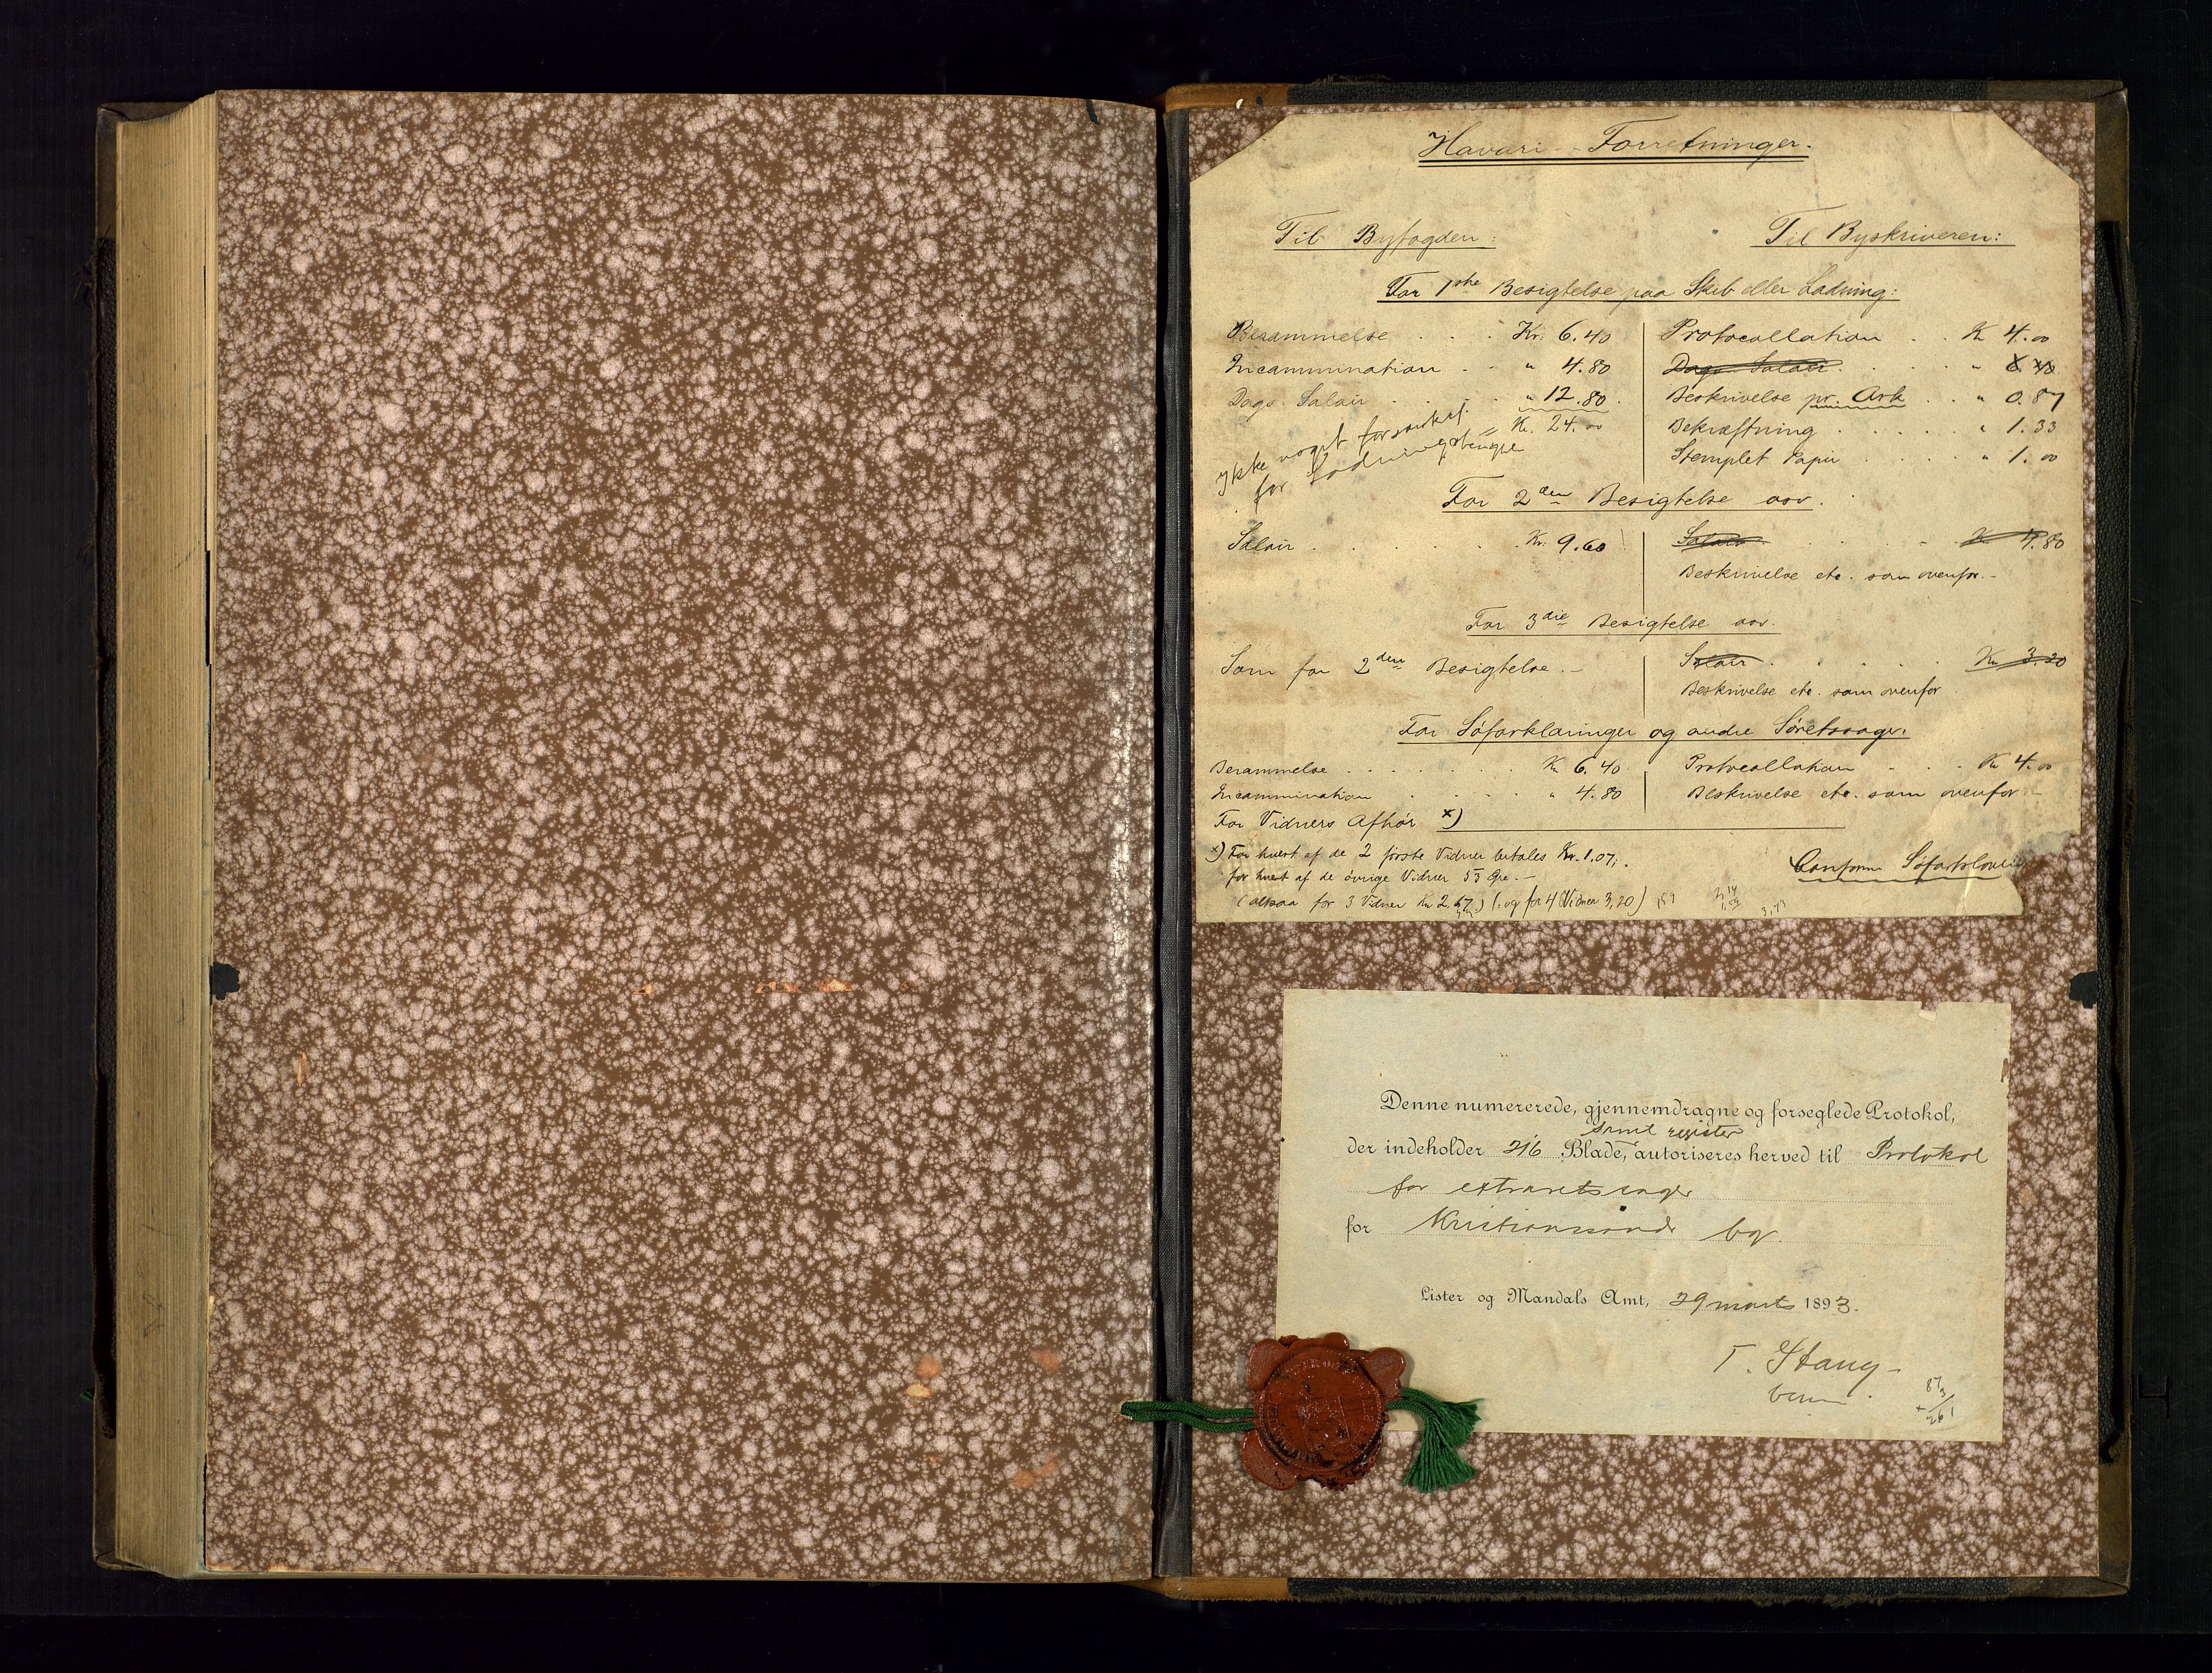 Havari-Forretninger.
Til Byfogden: Til Byskriveren:
For 1ste Besigtelse paa Skib eller Ladning:
Berammelse . . . Kr. 6.40 Protocollation . . Kr 4.00
Incammination . . " 4.80 Dags Salair . . . "
Dags Salair . . . " 12.80. Beskrivelse pr. Ark . . " 0.87
Kr. 24.00 Bekræftning . . . . " 1.33
ikke noget for
for Stemplet Papir . . . . " 1.00
For 2den Besigtelse osv.
Salair . . . . . . Kr. 9.60 Salair . . . . Kr 4.80
Beskrivelse etc. som ovenfor.-
For 3die Besigtelse osv.
Som for 2den Besigtelse.- Salair . . . . . Kr 3.20
Beskrivelse etc. som ovenfor
For Søforklaringer og andre Søretssager.
Berammelse . . . . . . Kr 6.40 Protocollation . . . Kr 4.00
Incammination . . . . . " 4.80 Beskrivelse etc. som ovenfor -
For Vidners Afhør x)
x) For hvert af de 2 første Vidner betales Kr. 1.07;.
for hvert af de øvrige Vidner 53 Øre.-
(altsaa for 3 Vidner Kr 2.67) (og for 4 Vidner 3,20)
Conform
Denne numererede, gjennemdragne og forseglede Protokol,
samt register
der indeholder 216 Blade, autoriseres herved til Protokol
for extraretssager
for Kristianssands by.
Lister og Mandals Amt, 29 marts 1893.
T. Stang
87
3
261